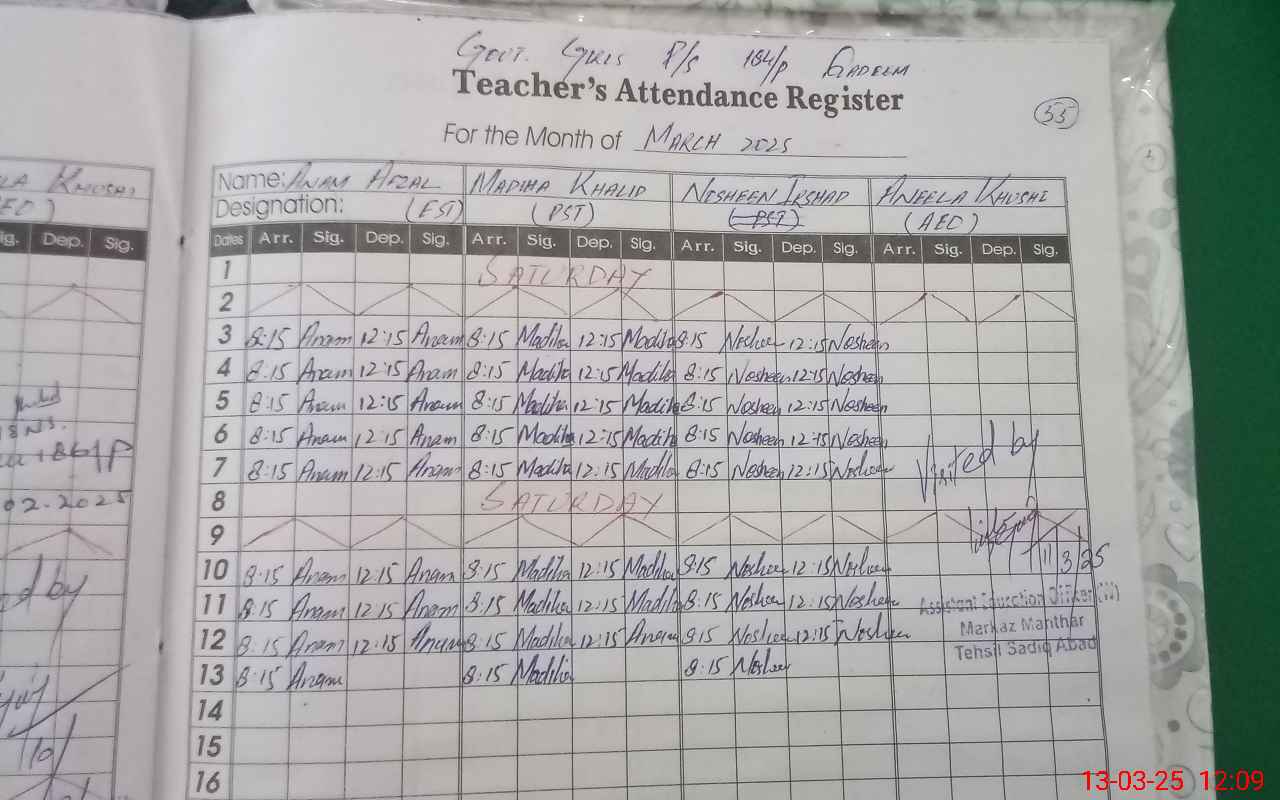 GOVT. GIRLS P/S 184/P QADEEM
Teacher's Attendance Register
55
For the Month of MARCH 2025
Name: ANAM AFZAL MADIHA KHALID NOSHEEN IRSHAD ANEELA KHUSHI
Designation: (EST) (PST) (PST) (AEO)
Dates Arr. Sig. Dep. Sig. Arr. Sig. Dep. Sig. Arr. Sig. Dep. Sig. Arr. Sig. Dep. Sig.
1 SATURDAY
2
3 8:15 Anam 12:15 Anam 8:15 Madiha 12:15 Madiha 8:15 Nosheen 12:15 Nosheen
4 8:15 Anam 12:15 Anam 8:15 Madiha 12:15 Madiha 8:15 Nosheen 12:15 Nosheen
5 8:15 Anam 12:15 Anam 8:15 Madiha 12:15 Madiha 8:15 Nosheen 12:15 Nosheen
6 8:15 Anam 12:15 Anam 8:15 Madiha 12:15 Madiha 8:15 Nosheen 12:15 Nosheen
7 8:15 Anam 12:15 Anam 8:15 Madiha 12:15 Madiha 8:15 Nosheen 12:15 Nosheen
Visited by
8 SATURDAY
9
10 8:15 Anam 12:15 Anam 8:15 Madiha 12:15 Madiha 8:15 Nosheen 12:15 Nosheen
11/3/25
11 8:15 Anam 12:15 Anam 8:15 Madiha 12:15 Madiha 8:15 Nosheen 12:15 Nosheen
Assistant Education Officer (W)
12 8:15 Anam 12:15 Anam 8:15 Madiha 12:15 Anam 8:15 Nosheen 12:15 Nosheen
Markaz Manthar
Tehsil Sadiq Abad
13 8:15 Anam 8:15 Madiha 8:15 Nosheen
14
15
16
LA KHUSHI
EO)
ig. Dep. Sig.
186/P
02.2025
ed by
13-03-25 12:09